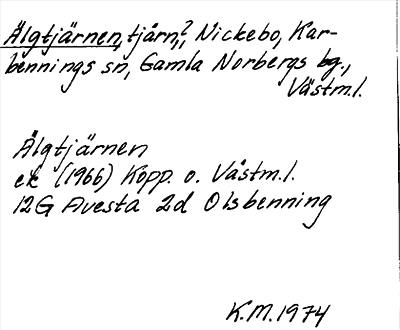 Älgtjärnen, tjärn?, Nickebo, Kar-
bennings sn, Gamla Norbergs bg.,
Västm.l.
Älgtjärnen
ek (1966) Kopp. o. Västm.l.
12G Avesta 2d Olsbenning
K.M. 1974